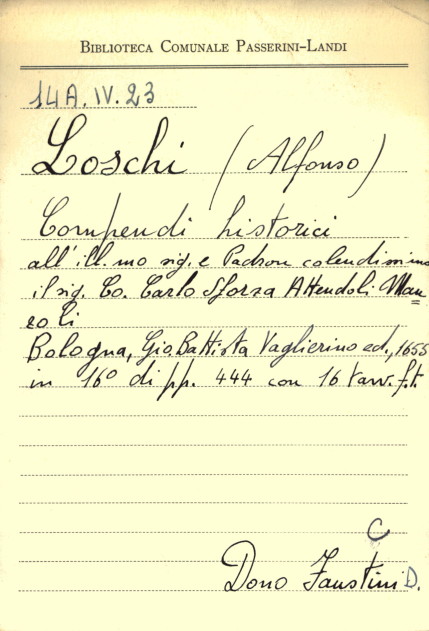 BIBLIOTECA COMUNALE PASSERINI-LANDI
14A.IV.23
Loschi (Alfonso)
Compendi historici
all'ill.mo sig. e Padron colendissimo
il sig. Co. Carlo Sforza Attendoli Man=
zoli
Bologna, Gio. Battista Vaglierino ed., 1655
in 16° di pp. 444 con 16 tavv. f.t.
C
Dono Faustini D.